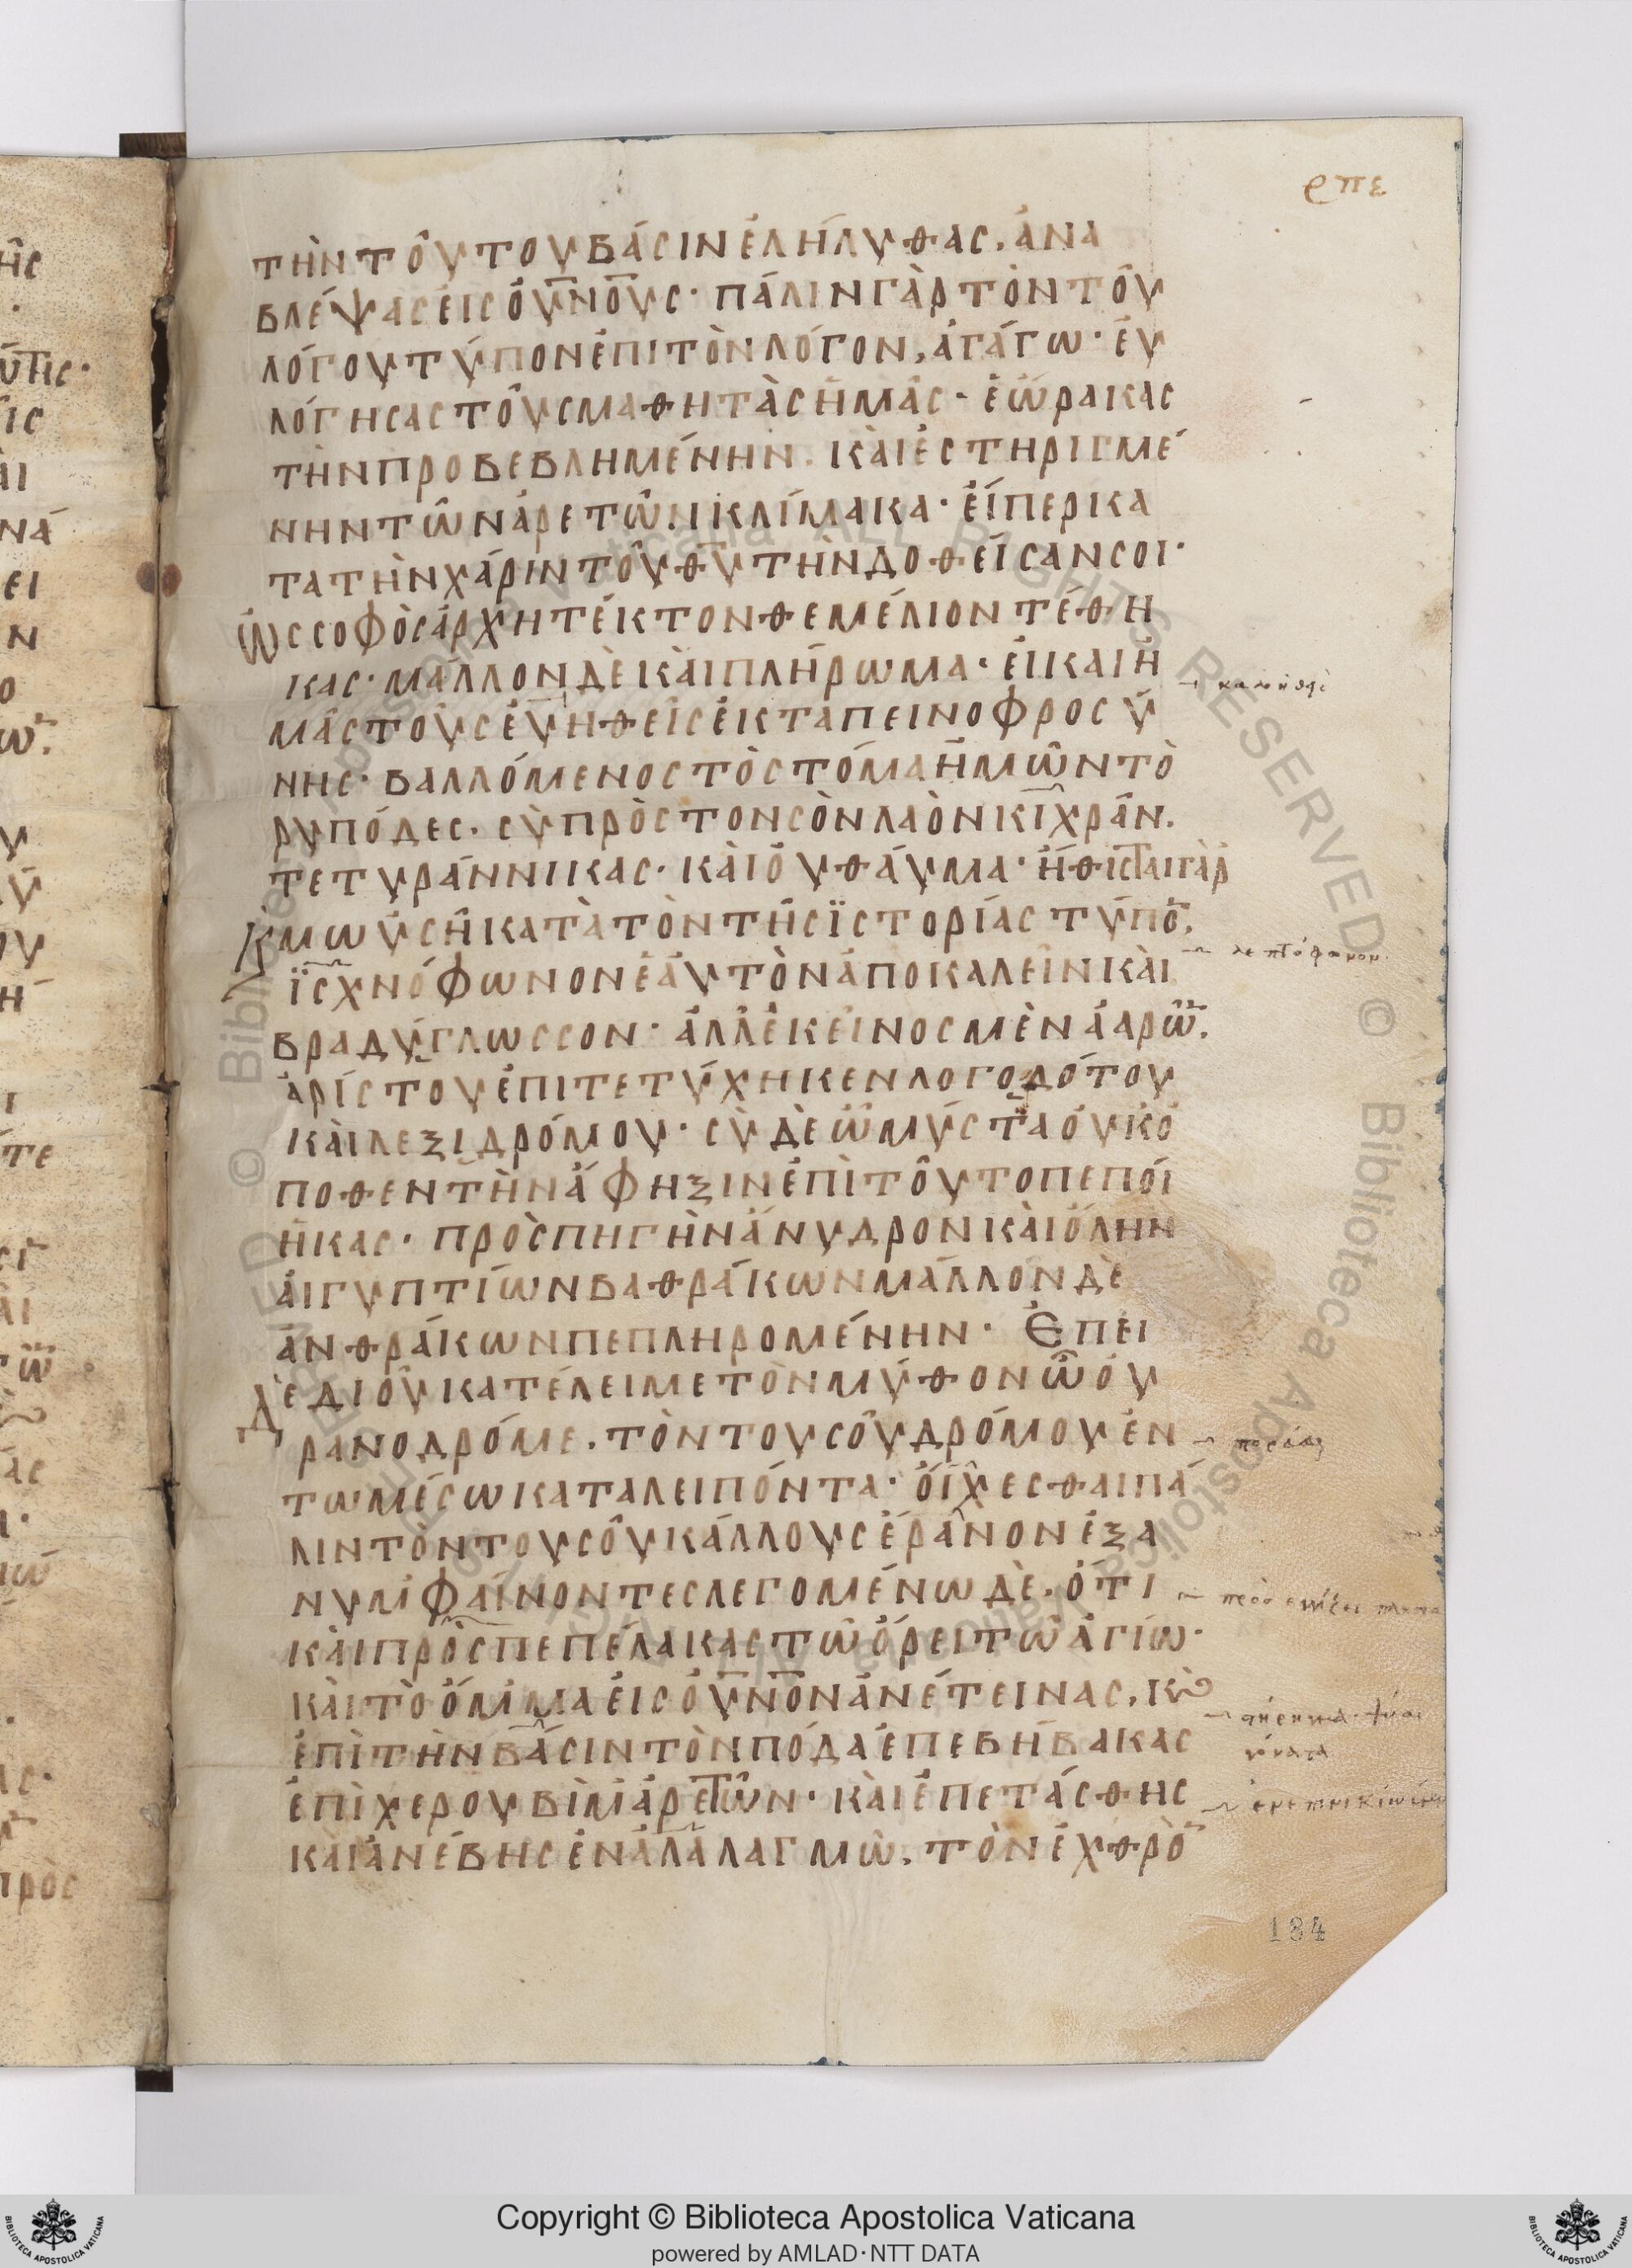 ρπε
τὴν τοῦ τού βάσιν ἐλήλυθας, ἀνα
βλέψας εἰς οὐ̅νο̅ύς· πάλιν γὰρ τὸν τοῦ
λόγου τύπον ἐπι τὸν λόγον, ἀγάγω· ἐυ
λόγησας τοῦς μαθητὰς ἡμᾶς· ἑώρακας
τὴν προβεβλημένην. κὰι ἐστηριγμέ
νην τῶν ἀρετῶν κλίμακα· ἐίπερ κα
τα τὴν χάριν τοῦ θ̅υ̅ τὴν δοθεῖσαν σοι·
ὡς σοφὸς ἀρχητέκτον θεμέλιον τέθη
κας· μᾶλλον δὲ κὰι πλήρωμα· ἐικαι ἡ
μᾶς τοῦς ἑψηθεῖς ἐκ ταπεινοφροσύ
νης· βαλλόμενος τὸ στόμα ἡμῶν τὸ
ρυπόδες· σὺ πρὸς τον σὸν λαὸν κιχρᾶν.
τετυράννικας· κὰι ὀυ θάυμα· ἤθισται γὰρ
μωύσῆ κατὰ τὸν τῆς ϊστορίας τύπο̅,
ϊσχνόφωνον ἑάυτὸν ἀποκαλεῖν κὰι
βραδύγλωσσον· ἀλλ ἐκεῖνος μὲν ἀαρὼ̅.
ἀρίστου ἐπιτετύχηκεν λογοδότου
κὰι λεξιδρόμου· σὺ δὲ ὦ μύστα ὀυκ ὁ
ποθεν τὴν ἄφηξιν ἐπὶ τοῦτο πεποί
ηκας· πρὸς πηγὴν ἄνυδρον κὰι ὅλην
ἀιγυπτίων βαθράκων μᾶλλον δὲ
ἀνθράκων πεπληρομένην· Ἐπει
δὲ διοῦ κατέλει με τὸν μύθον ὦ ὀυ
ρανοδρόμε. τὸν του σοῦ δρόμου ἐν
τω μέσω καταλειπόντα· ὄιχεσθαι πά
λιν τὸν του σοῦ κάλλους ἔρανον ἐξα
νυμιφαίνοντες λεγομένω δὲ. ὅτι
κὰι πρὸς πεπέλακας τῶ ὄρει τῶ ἁγίω·
κὰι τὸ ὄμμα ἐις ὀυ̅νο̅ν ἀνέτεινας, κὼ
ἐπὶ τὴν βάσιν τὸν πόδα ἐπεβήβακας
ἐπὶ χερουβὶμ ἀρετῶν· κὰι ἐπετάσθης
κὰι ἀνέβης ἐν ἀλαλαγμῶ. τὸν ἐχθρὸ̅
λεπτόφωνον.
184
Copyright © Biblioteca Apostolica Vaticana
powered by AMLAD·NTT DATA